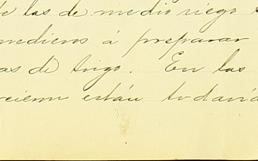 de las de medio riego
medieros á preparar
as de trigo. En las
están todavía